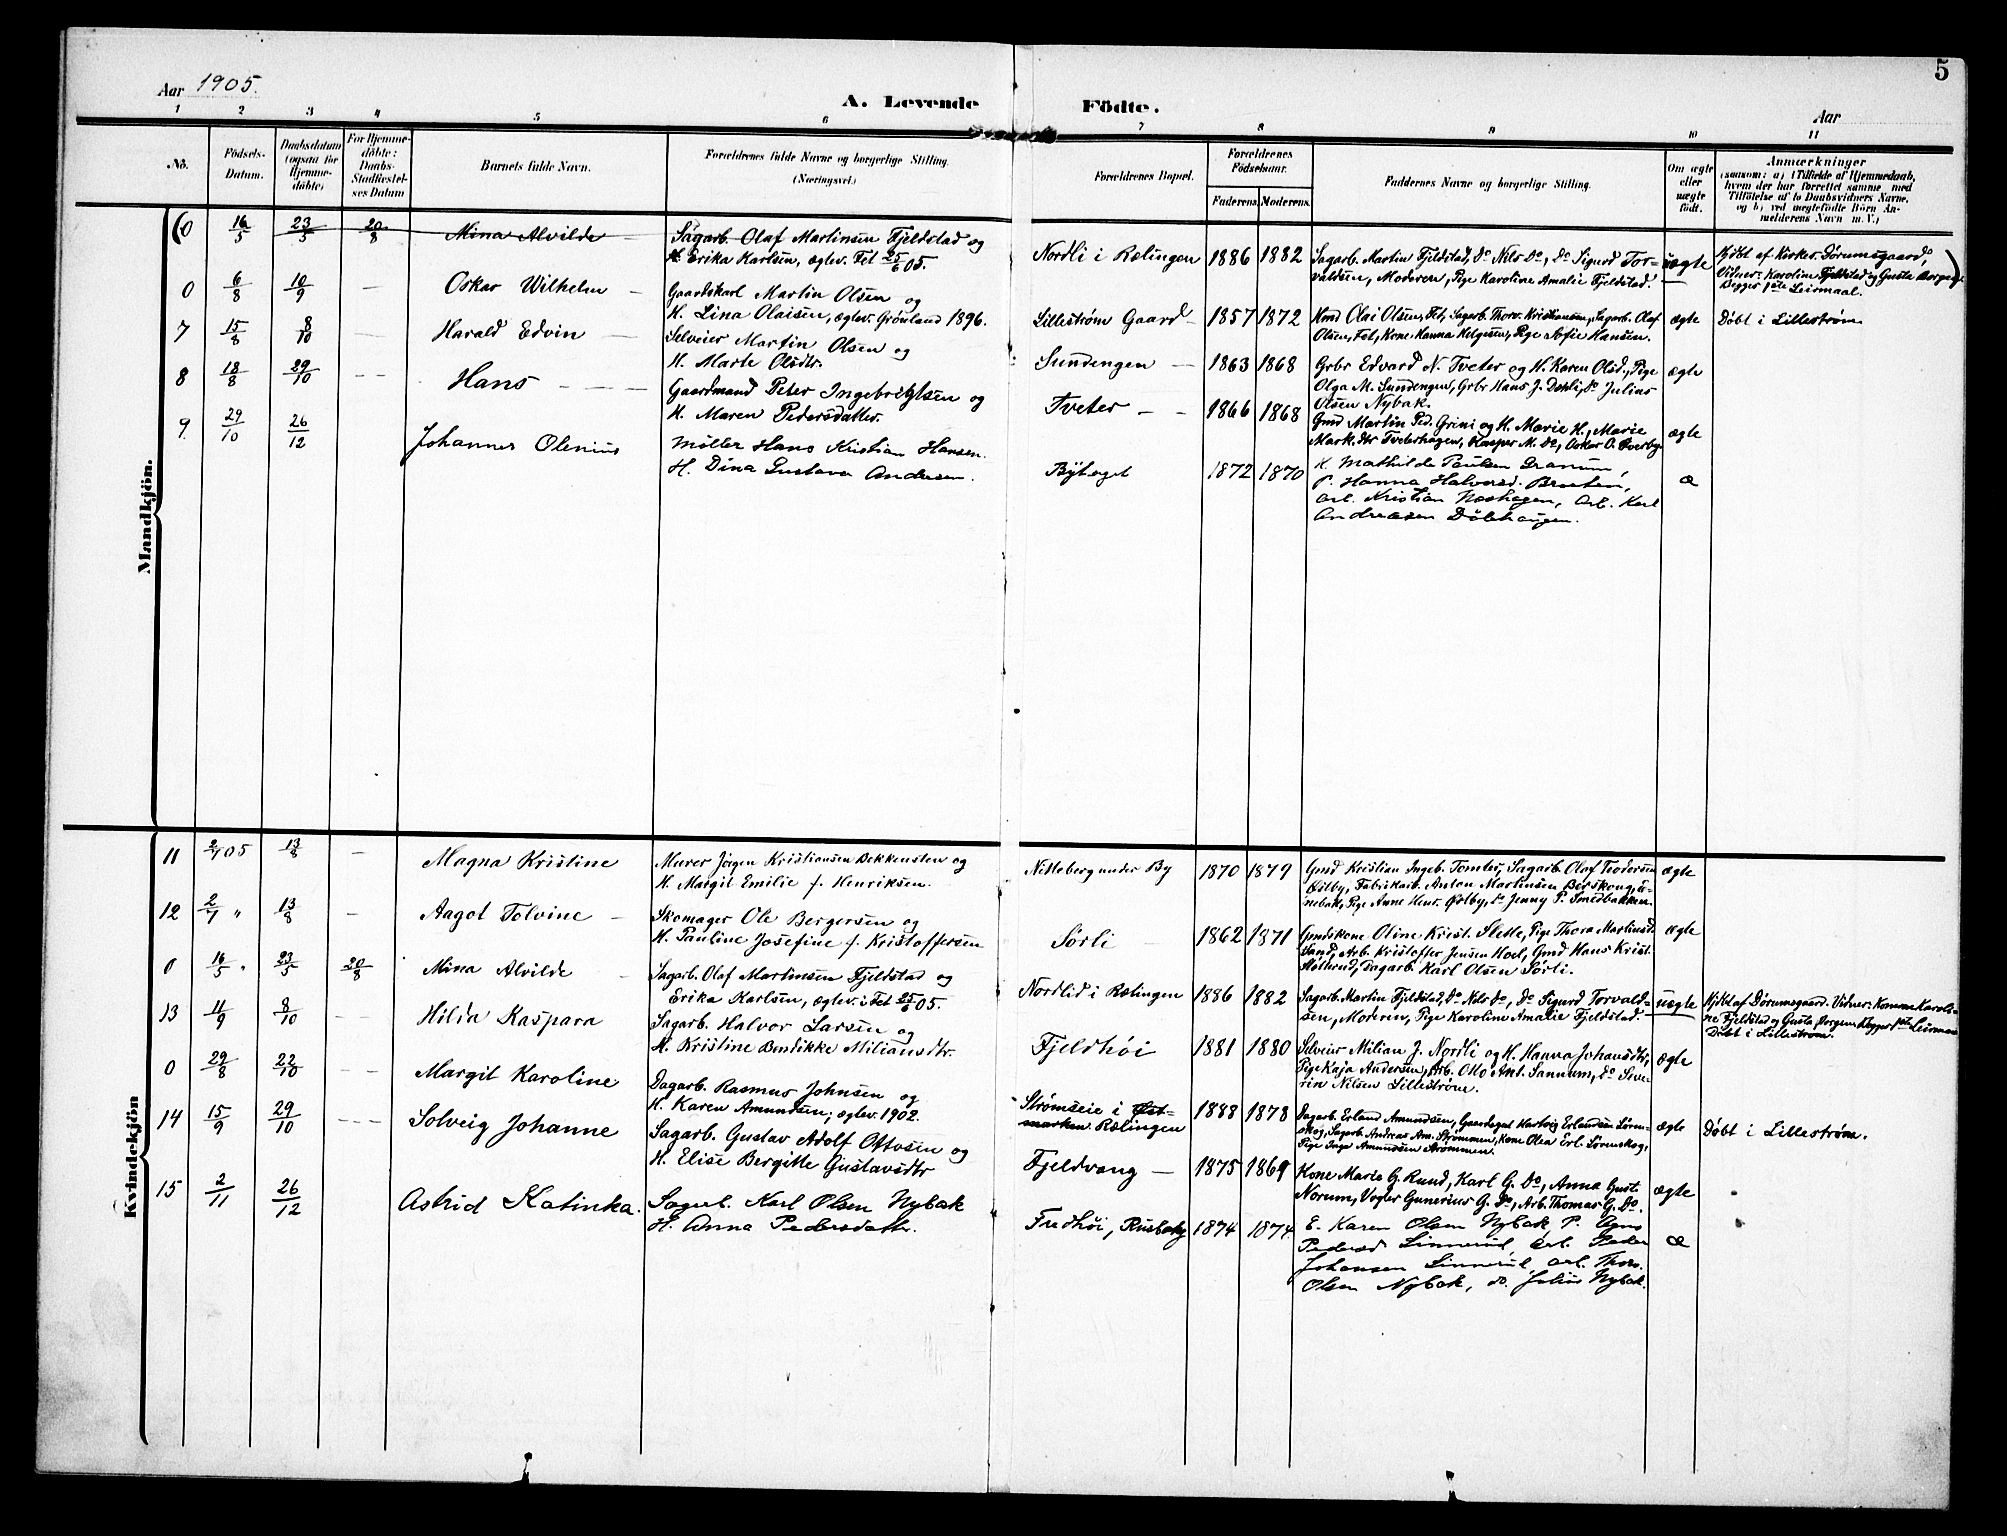 5
Aar 1905.
A. Levende Födte.
Aar
1 2 3 4 5 6 7 8 9 10 11
No.
Födsels-
Datum.
Daabsdatum
(ogsaa for
Hjemme-
döbte)
For Hjemme-
döbte:
Daabs-
Stadfæstel-
ses Datum
Barnets fulde Navn.
Forældrenes fulde Navne og borgerlige Stilling.
(Næringsvei.)
Forældrenes Bopæl.
Forældrenes
Födselsaar.
Faderens. Moderens.
Faddernes Navne og borgerlige Stilling.
Om ægte
eller
uægte
födt.
Anmærkninger
(saasom: a) i Tilfælde af Hjemmedaab,
hvem der har forrettet samme, med
Tilföielse af to Daabsvidners Navne,
og b) ved uægtefödte Börn An-
melderens Navn m. V.)
Mandkjön.
(0 16/5 23/5 20/8 Mina Alvilde
Sagarb. Olaf Martinsen Fjeldstad og
K. Erika Karlsen, ægtev. Fet 25/6 05.
Nordli i Rælingen 1886 1882
Sagarb. Martin Fjeldstad, Do Nils Do, Do Sigurd Tor-
valdsen, Moderen, Pige Karoline Amalie Fjeldstad.
uægte
Hjdbt af Kirkes. Dørumsgaard,
Vidner: Karoline Fjeldstad og Gusta Borgen
Begges 1ste Leiermaal.)
0 6/8 10/9 Oskar Wilhelm
Gaardskarl Martin Olsen og
H. Lina Olaisen, ægtev. Grönland 1896.
Lillestrøm Gaard 1857 1872
Gmd Olai Olsen, Fet, Sagarb. Thorv. Kristiansen, Sagarb. Olaf
Olsen, Fet, Kone Hanna Helgesen, Pige Sofie Hansen.
ægte
Døbt i Lillestrøm
7 15/8 8/10 Harald Edvin
Selveier Martin Olsen og
H. Marte Olsdtr.
Sundengen 1863 1868
Grbr Edvard N. Tveter og H. Karen Olsd., Pige
Olga M. Sundengen, Grbr Hans J. Dehli, Do Julius
Olsen Nybak.
ægte
8 18/8 29/10 Hans
Gaardmand Peter Ingebrigtsen og
H. Maren Pedersdatter.
Tveter 1866 1868
Gmd Martin Ped. Grini og H. Marie H., Marie
Mark. dtr Tveterhagen, Kasper M. Do, Oskar O. Överby
ægte
9. 29/10 26/12 Johannes Olenius
Møller Hans Kristian Hansen.
H. Dina Gustava Andersen.
1872 1870
K. Mathilde Paulsen Granum,
P. Hanna Halvorsd. Braaten,
arb. Kristian Neshagen, Arb. Karl
Andreasen Dølihaugen.
æ
Kvindekjön
11 2/7 05 13/8 Magna Kristine
Murer Jörgen Kristiansen Bekkensten og
H. Margit Emilie f. Henriksen.
Nitteberg under By 1870 1879
Gmd Kristian Ingeb. Tomter, Sagarb. Olaf Teodorsen
Østby, Fabrikarb. Anton Martinsen
Pige Anne Henr. Østby, Do Jenny P. Smedbakken.
ægte
12 2/7 " 13/8 Aagot Tolvine
Skomager Ole Bergersen og
H. Pauline Josefine f. Kristoffersen
Sörli 1862 1871
Gmdskone Oline Krist. Slette, Pige Thora Martinsd.
Sand, Arb. Kristoffer Jensen Hoel, Gmd Hans Krist.
Dagarb. Karl Olsen Sörli.
ægte
0 16/5 " 23/5 20/8 Mina Alvilde
Sagarb. Olaf Martinsen Fjeldstad og
Erika Karlsen, ægtev. i Fet 25/6 05.
Nordli i Rælingen 1886 1882
Sagarb. Martin Fjeldstad, Do Nils Do, Do Sigurd Torvald-
sen, Moderen, Pige Karoline Amalie Fjeldstad.
uægte
Hjdbt af Dörumsgaard. Vidner: Konerne Karoli-
ne Fjeldstad og Gusta Borgen. Begges 1ste Leierm.
Döbt i Lilleström.
13 11/9 8/10 Hilda Kaspara
Sagarb. Halvor Larsen og
H. Kristine Bendikke Miliansdtr.
Fjeldhöi 1881 1880
Selveier Milian J. Nordli og H. Hanna Johansdtr,
Pige Kaja Andersen, Arb. Otto Ant. Sannum, Do Seve-
rin Nilsen Lilleström.
ægte
0 29/8 22/10 Margit Karoline
Dagarb. Rasmus Johnsen og
H. Karen Amundsen; ægtev. 1902.
Strömseie i Øst-
marken Rælingen 1888 1878
Dagarb. Erland Amundsen, Gaardsgut Hartvig Erlandsen Lören-
skog, Sagarb. Andreas Am. Strömmen, Kone Olea Erl. Lörenskog,
Pige Inga Amundsen Strömmen.
ægte
Döbt i Lilleström.
14 15/9 29/10 Solveig Johanne
Sagarb. Gustav Adolf Ottosen og
H. Elise Bergitte Gustavsdtr
Fjeldvang 1875 1869
Kone Marie G. Rund, Karl G. Do, Anna Gust.
Norum, Vogter Gunerius G. Do, Arb. Thomas G. Do.
ægte
15 2/11 26/12 Astrid Katinka.
Sagarb. Karl Olsen Nybak
H. Anna Pedersdatter.
Fredhöi, 1874 1874.
E. Karen Olsen Nybak, P. Agnes
Pedersd. Linnerud, arb. Peder
Johansen Linnerud, arb. Thorv.
Olsen Nybak, do. Julius Nybak.
æ